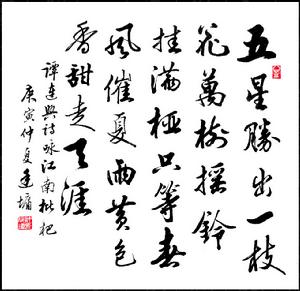 五星勝出一枝
花萬樹搖鈴
挂滿極只等春
風催夏雨黄色
香甜走天涯
譚達興詩咏江南枇杷
庚寅仲夏達墉